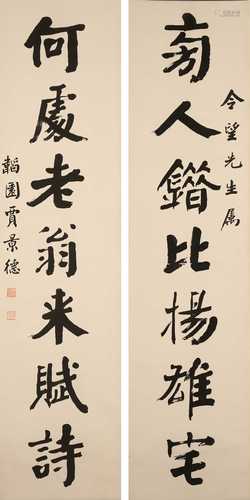 令望先生属
旁人錯比楊雄宅
何處老翁来賦詩
韜園賈景德